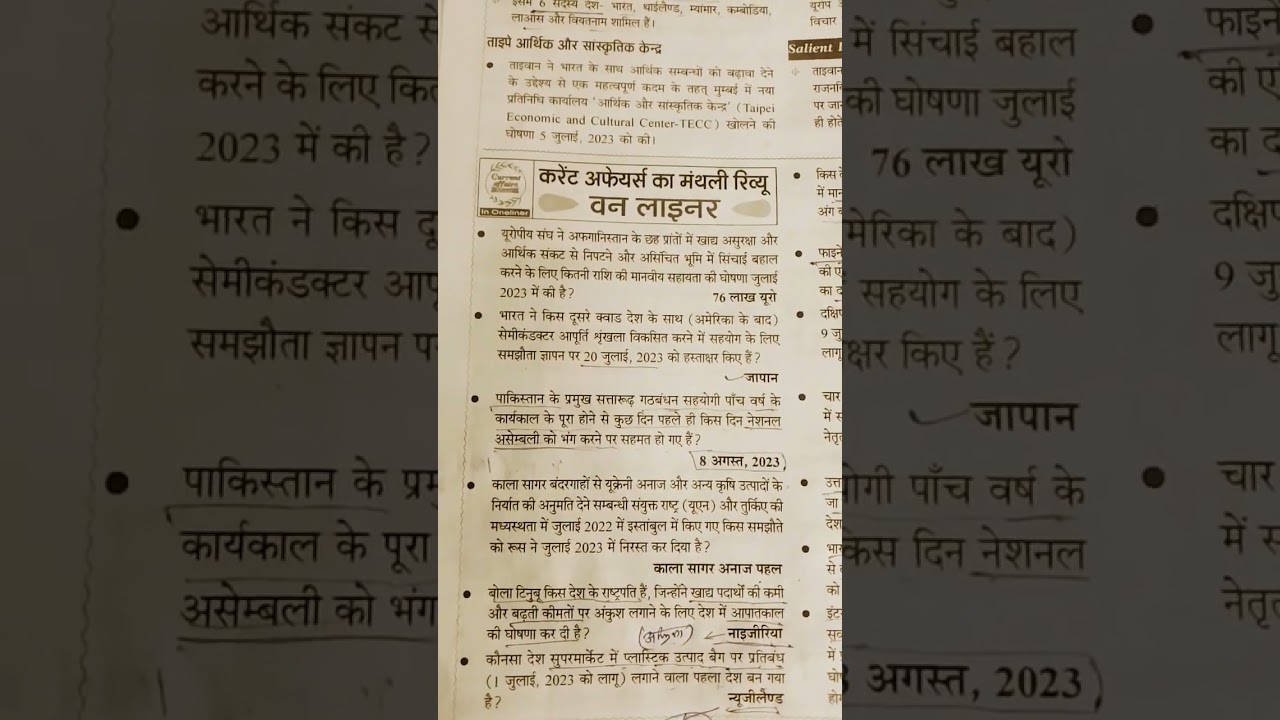 इसमें 6 सदस्य देश- भारत, थाईलैण्ड, म्यांमार, कम्बोडिया,
लाओस और वियतनाम शामिल हैं।
ताइपे आर्थिक और सांस्कृतिक केन्द्र
ताइवान ने भारत के साथ आर्थिक सम्बन्धों को बढ़ावा देने
के उद्देश्य से एक महत्वपूर्ण कदम के तहत् मुम्बई में नया
प्रतिनिधि कार्यालय 'आर्थिक और सांस्कृतिक केन्द्र' (Taipei
Economic and Cultural Center-TECC) खोलने की
घोषणा 5 जुलाई, 2023 को की।
Current affairs
In Oneliner
करेंट अफेयर्स का मंथली रिव्यू
वन लाइनर
यूरोपीय संघ ने अफगानिस्तान के छह प्रांतों में खाद्य असुरक्षा और
आर्थिक संकट से निपटने और असिंचित भूमि में सिंचाई बहाल
करने के लिए कितनी राशि की मानवीय सहायता की घोषणा जुलाई
2023 में की है?
76 लाख यूरो
भारत ने किस दूसरे क्वाड देश के साथ (अमेरिका के बाद)
सेमीकंडक्टर आपूर्ति शृंखला विकसित करने में सहयोग के लिए
समझौता ज्ञापन पर 20 जुलाई, 2023 को हस्ताक्षर किए हैं?
जापान
पाकिस्तान के प्रमुख सत्तारूढ़ गठबंधन सहयोगी पाँच वर्ष के
कार्यकाल के पूरा होने से कुछ दिन पहले ही किस दिन नेशनल
असेम्बली को भंग करने पर सहमत हो गए हैं?
8 अगस्त, 2023
काला सागर बंदरगाहों से यूक्रेनी अनाज और अन्य कृषि उत्पादों के
निर्यात की अनुमति देने सम्बन्धी संयुक्त राष्ट्र (यूएन) और तुर्किए की
मध्यस्थता में जुलाई 2022 में इस्तांबुल में किए गए किस समझौते
को रूस ने जुलाई 2023 में निरस्त कर दिया है?
काला सागर अनाज पहल
बोला टिनुबू किस देश के राष्ट्रपति हैं, जिन्होंने खाद्य पदार्थों की कमी
और बढ़ती कीमतों पर अंकुश लगाने के लिए देश में आपातकाल
की घोषणा कर दी है?
नाइजीरिया
कौनसा देश सुपरमार्केट में प्लास्टिक उत्पाद बैग पर प्रतिबंध
(1 जुलाई, 2023 को लागू) लगाने वाला पहला देश बन गया
है?
न्यूजीलैण्ड
विचार
Salient
ताइवान
पर जा
ही होते
किस
में मा
अंग
फाइने
की ए
का द
दक्षिण
9 जु
लागू
चार
में स
नेतृ